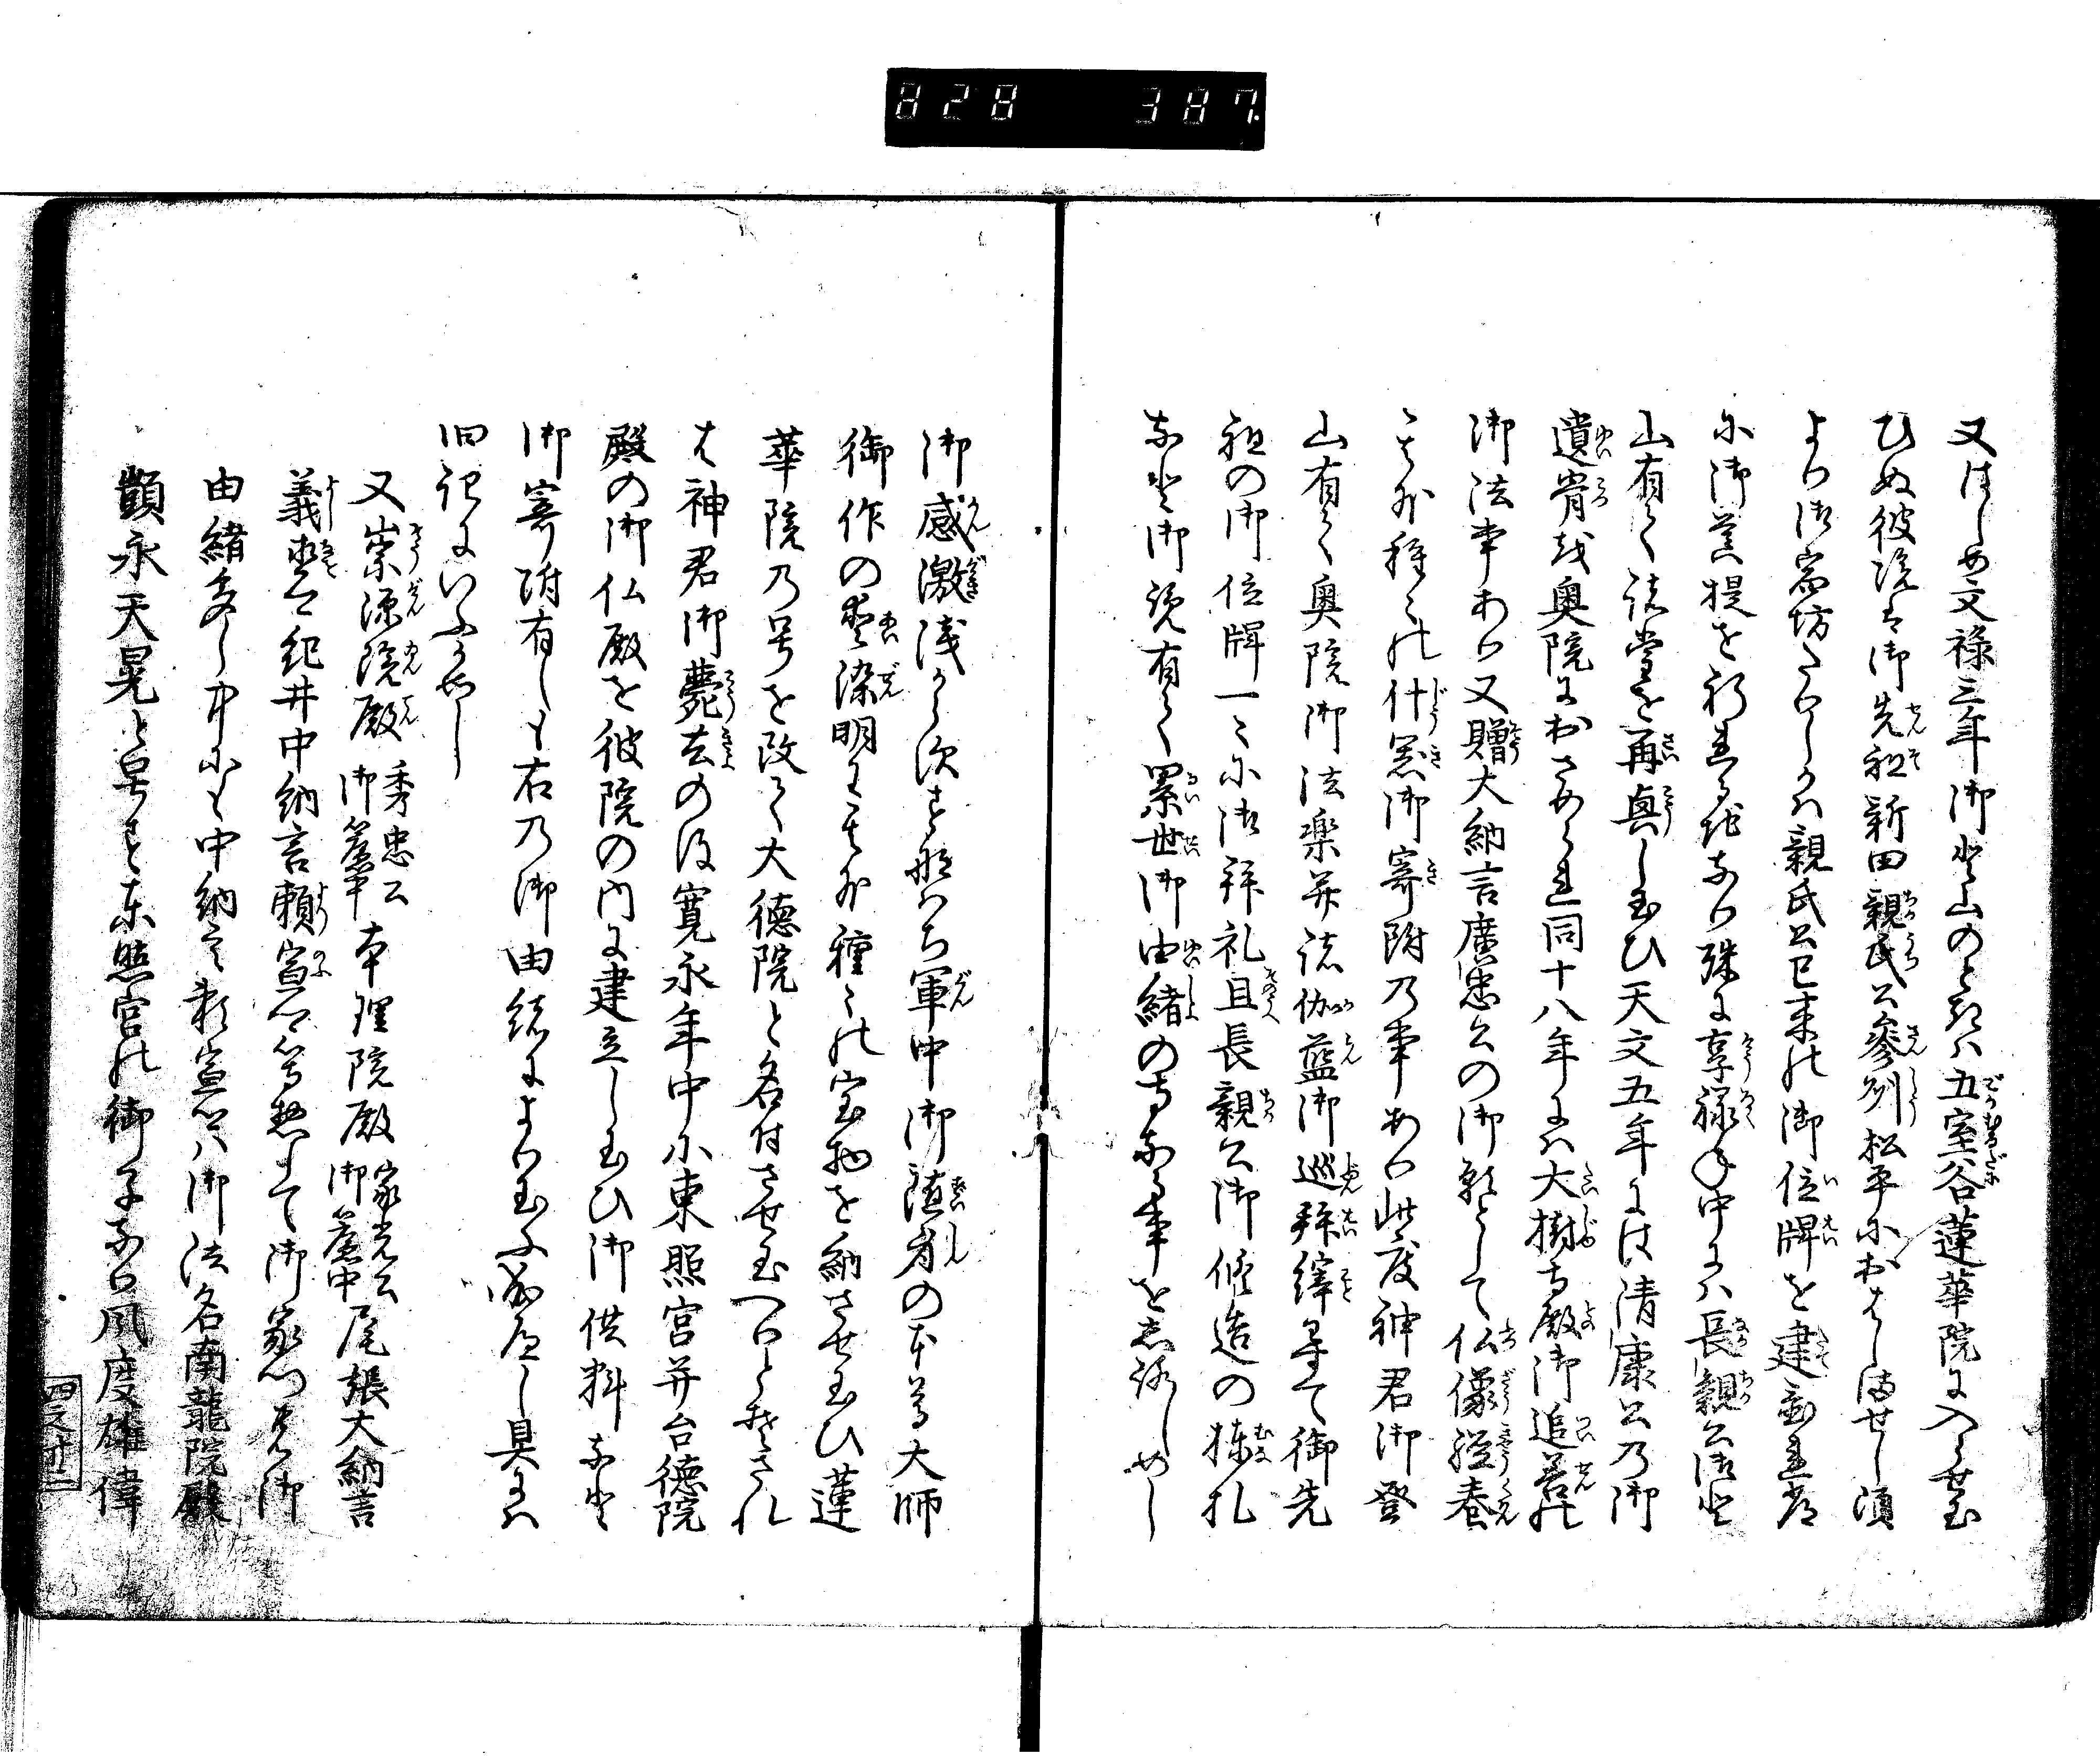 828 387
又はしめ文禄三年御登山のときハ五室谷蓮華院に入らせ玉
ひぬ彼院は御先祖新田親氏公参州松平におはしませし頃
より御宿坊たりしかハ親氏公已来の御位牌を建置れ
に御菩提を祈る地なり殊に享禄年中にハ長親公御登
山有て諸堂を再興し玉ひ天文五年には清康公乃御
遺骨越奥院におさめられ同十八年にハ大樹寺殿御追善の
御法事あり又贈大納言廣忠公の御願として仏像経巻
其外種々の什器御寄附乃事あり此度神君御登
山有て奥院御法楽并諸伽藍御巡拝繹畢て御先
祖の御位牌一々に御拝礼且長親公御修造の棟札
など御覧有て累世御由緒の寺なる事を志ろしめし
御感激浅からす則ち軍中御随身の本尊大師
御作の愛染明王其外種々の宝物を納させ玉ひ蓮
華院乃号を改て大徳院と名付させ玉へりと
は神君御薨去の後寛永年中に東照宮并台徳院
殿の御仏殿を彼院の内に建立し玉ひ御供料など
御寄附有しも右乃御由緒により玉ふ成へし具にハ
旧記にいふかことし
又崇源院殿 秀忠公御簾中 本理院殿 家光公御簾中 尾張大納言
義直公紀井中納言頼宣公等惣して御家門方御
由緒多し中にも中納言頼宣公ハ御法名南龍院殿
顗永天晃と号す東照宮の御子なり風度雄偉
四之廿二